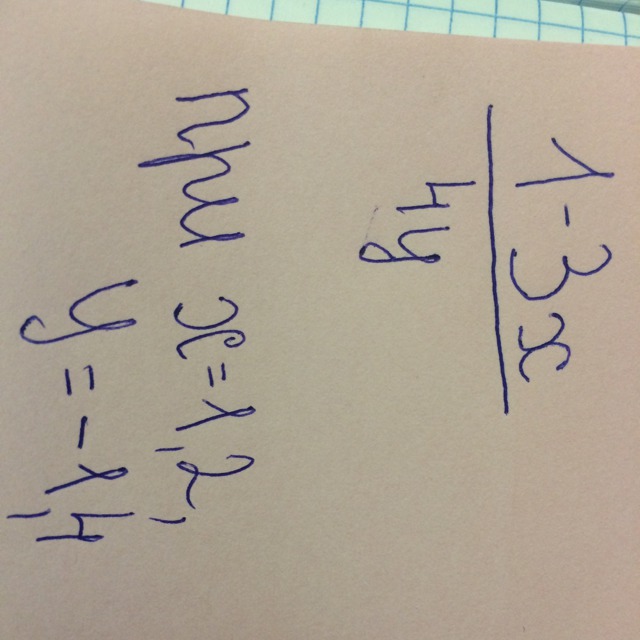 1-3x
4y
при x=1,2,
y=-1,4